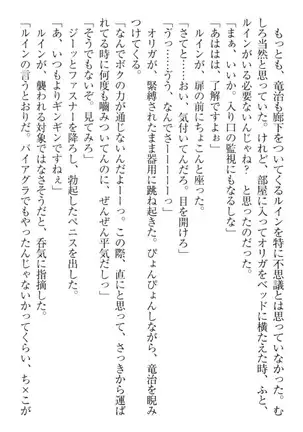 もっとも、竜治も廊下をついてくるルインを特に不思議とは思わなかった。む
しろ当然と思っていた。けれど、部屋に入ってオリガをベッドに横たえた時、ふと、
ルインがいる必要ないんじゃね？　と思ったのだった。
「まぁ、いいか。入り口の監視にもなるしな」
「あははは、了解ですよぉ」
ルインが、扉の前にちょこんと座った。
「さてと……おい、気付いてんだろ。目を開けろ」
「うっ……うう、なんでさーーーーーっ」
オリガが、緊縛されたまま器用に跳ね起きた。ぴょんぴょんしながら、竜治を睨み
つけてくる。
「なんでボクの力が通じないんだよーーっ。この際、直にと思って、さっきから運ば
れてる時に何度も嚙みついてんのに、ぜんぜん平気だしっ」
「そうでもないぞ。見てみろ」
ジーッとファスナーを降ろし、勃起したペニスを出した。
「あ、いつもよりギンギンですねぇ」
ルインが、襲われる対象ではなさそうだと、呑気に指摘した。
「ルインの言うとおりだ。バイアグラでもやったんじゃないかってくらい、ち×こが